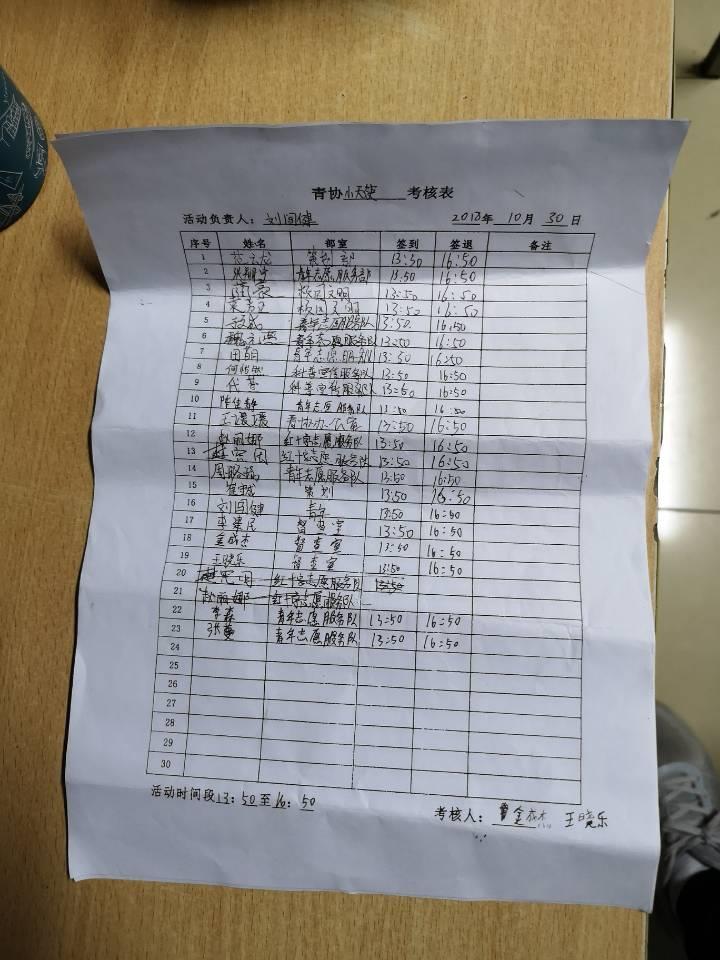 青协小天使 考核表
活动负责人：刘国健 2018年 10月 30日
序号 姓名 部室 签到 签退 备注
1 部 13:50 16:50
2 青年志愿服务部 13:50 16:50
3 校园文明 13:50 16:50
4 校园文明 13:50 16:50
5 青年志愿服务队 13:50 16:50
6 青年志愿服务队 13:50 16:50
7 田萌 青年志愿服务队 13:50 16:50
8 科普宣传服务队 13:50 16:50
9 科普宣传服务队 13:50 16:50
10 陈佳静 青年志愿服务队 13:50 16:50
11 王媛媛 青协办公室 13:50 16:50
12 赵丽娜 红十字志愿服务队 13:50 16:50
13 红十字志愿服务队 13:50 16:50
14 周璐瑶 青年志愿服务队 13:50 16:50
15 崔宇航 策划 13:50 16:50
16 刘国健 青年 13:50 16:50
17 督查室 13:50 16:50
18 金成杰 督查室 13:50 16:50
19 王晓乐 督查室 13:50 16:50
20 红十字志愿服务队 13:50
21 赵丽娜 红十字志愿服务队
22 李森 青年志愿服务队 13:50 16:50
23 张蔓 青年志愿服务队 13:50 16:50
24
25
26
27
28
29
30
活动时间段13：50至16：50
考核人：金成杰 王晓乐